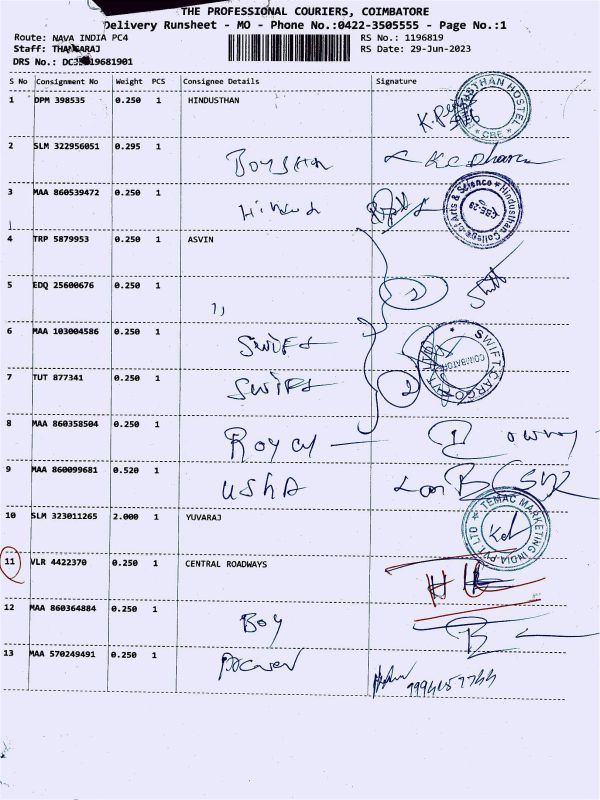 THE PROFESSIONAL COURIERS, COIMBATORE
Delivery Runsheet - MO - Phone No.:0422-3505555 - Page No.:1
Route: NAVA INDIA PC4 RS No.: 1196819
Staff: THANGARAJ RS Date: 29-Jun-2023
DRS No.: 19681901
S No Consignment No Weight PCS Consignee Details Signature
1 DPM 398535 0.250 1 HINDUSTHAN
HINDUSTHAN HOSTEL CBE
2 SLM 322956051 0.295 1
3 MAA 860539472 0.250 1
Hindusthan College of Arts & Science CBE-28
4 TRP 5879953 0.250 1 ASVIN
5 EDQ 25600676 0.250 1 2
6 MAA 103004586 0.250 1 SWIFT
SWIFT CARGO PVT LTD COIMBATORE
7 TUT 877341 0.250 1 SWIFT 2
8 MAA 860358504 0.250 1 Royal
9 MAA 860099681 0.520 1 USHA
10 SLM 323011265 2.000 1 YUVARAJ
TEMAC MARKETING INDIA PVT LTD
11 VLR 4422370 0.250 1 CENTRAL ROADWAYS
12 MAA 860364884 0.250 1 Boy
13 MAA 570249491 0.250 1